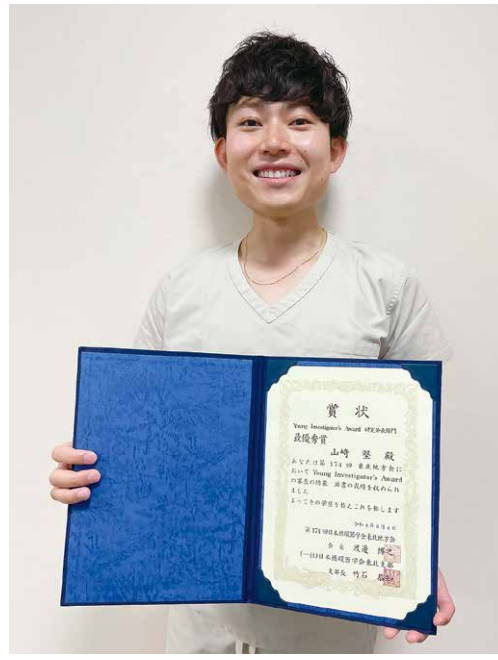 賞状
Young Investigator's Award 研究発表部門
最優秀賞
山崎 堅 殿
あなたは第 174 回 東北地方会に
おいて Young Investigator's Award
の審査の結果 頭書の成績を収められ
ました
よってその栄誉を称えこれを称します
令和4年6月4日
第174回日本循環器学会東北地方会
会長 渡邊 博之
(一社)日本循環器学会東北支部
支部長 竹石